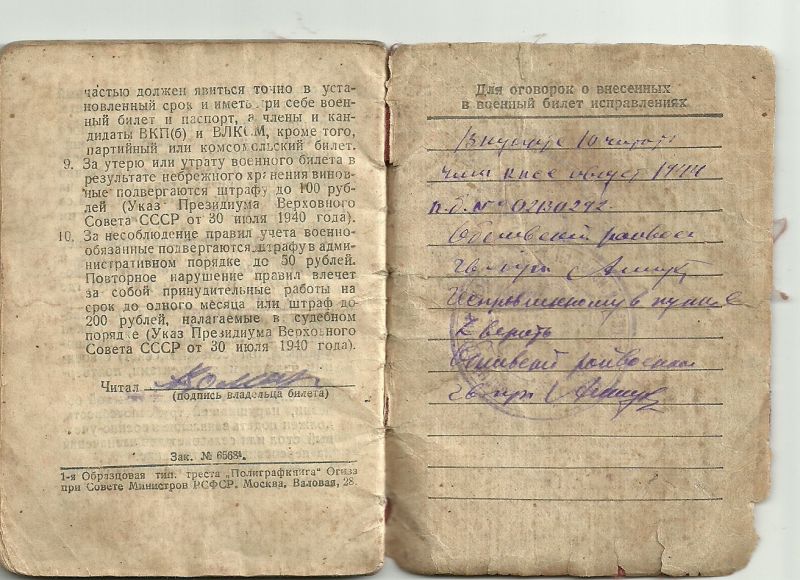 частью должен явиться точно в уста-
новленный срок и иметь при себе воен-
ный билет и паспорт, а члены и кан-
дидаты ВКП(б) и ВЛКСМ, кроме того,
партийный или комсомольский билет.
9. За утерю или утрату военного билета в
результате небрежного хранения винов-
ные подвергаются штрафу до 100 руб-
лей (Указ Президиума Верховного
Совета СССР от 30 июля 1940 года).
10. За несоблюдение правил учета военно-
обязанные подвергаются штрафу в адми-
нистративном порядке до 50 рублей.
Повторное нарушение правил влечет
за собой принудительные работы на
срок до одного месяца или штраф до
200 рублей, налагаемые в судебном
порядке (Указ Президиума Верховного
Совета СССР от 30 июля 1940 года).
Читал
(подпись владельца билета)
Зак. № 6568
1-я Образцовая тип. треста „Полиграфкнига“ Огиза
при Совете Министров РСФСР. Москва, Валовая, 28.
Для оговорок о внесенных
в военный билет исправлениях
В пункте 10 читать
август 1944
п.б. № 0280292
Исправленному в пункте
2 верить